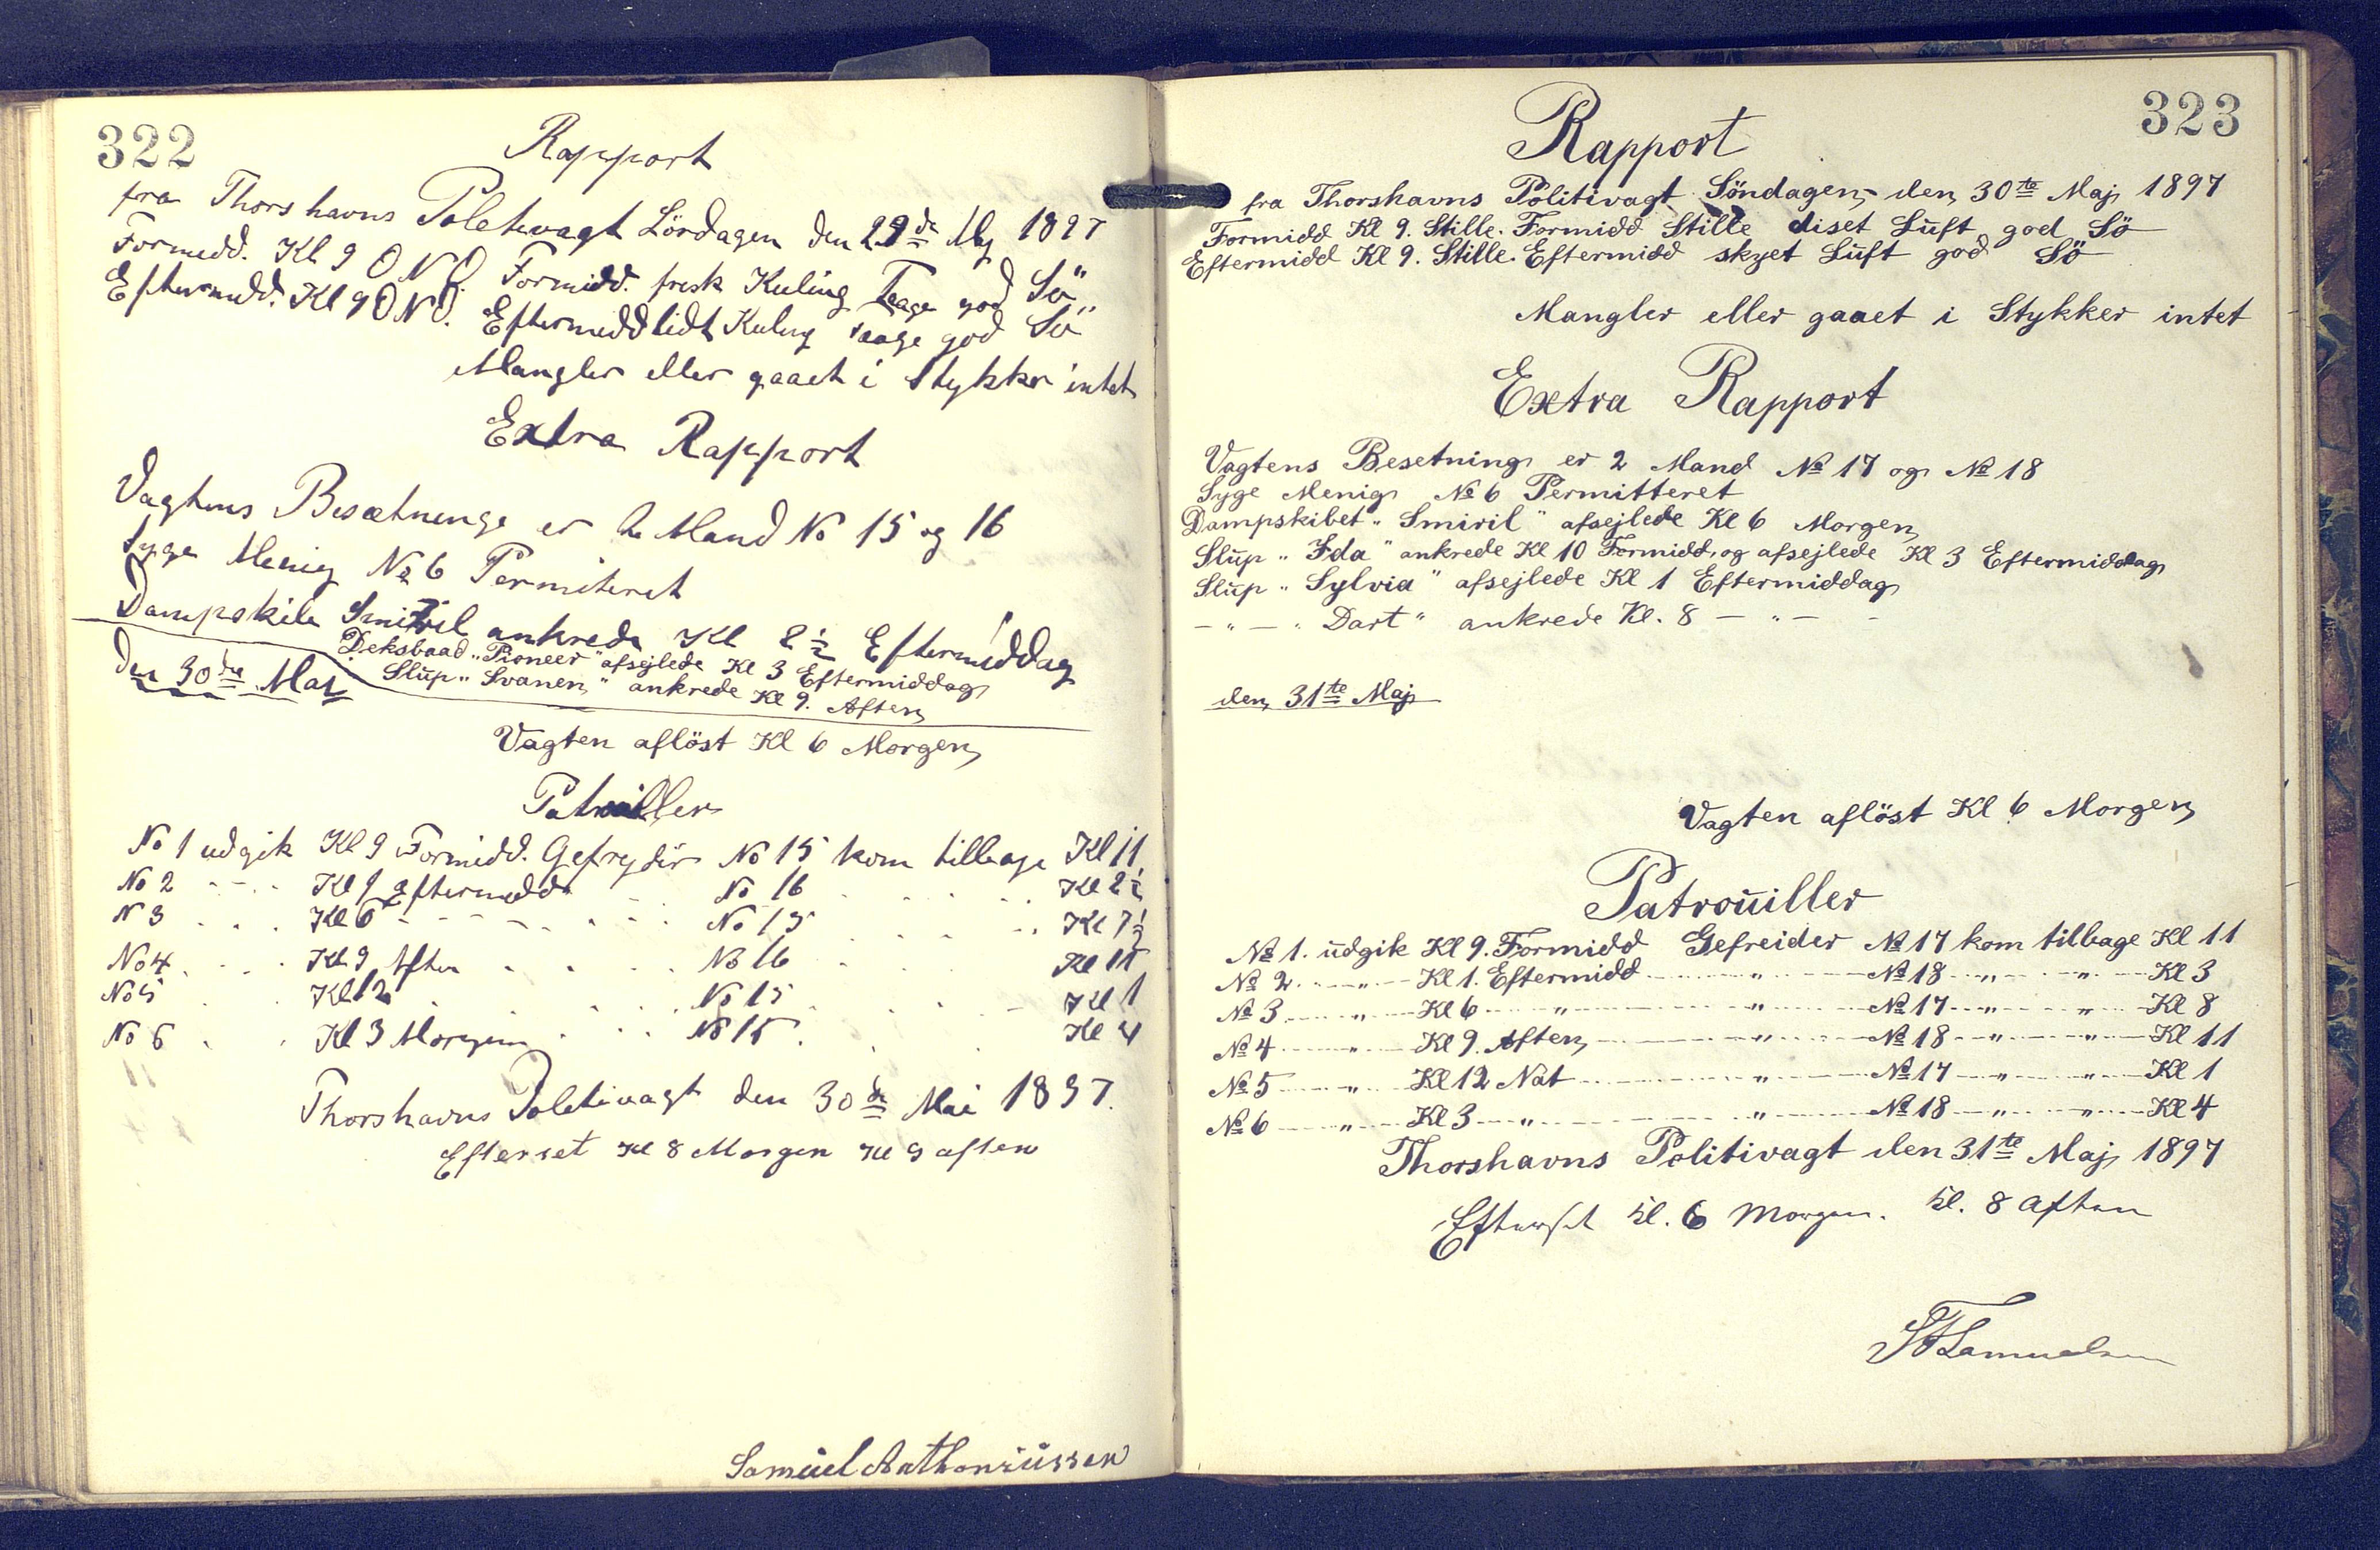 322
Rapport
fra Thorshavns Poletivagt Lördagen den 29de Maj 1897
Formidd. Kl 9 O N O. Formidd. frisk Kuling Taage god Sö
Eftermidd. Kl 9 O N O. Eftermidd lidt Kuling taage god Sö
Mangler eller gaaet i Stykker intet
Extra Rapport
Vagtens Besætninge er 2 Mand No 15 og 16
Syge Menig No 6 Permiteret
Dampskibe Smiril ankrede Kl 8½ Eftermiddag
Deksbaad „Pioneer" afsejlede Kl 3 Eftermiddag
Slup „Svanen" ankrede Kl 9. Aften
den 30de Maj
Vagten aflöst Kl 6 Morgen
Patruiller
No 1 udgik Kl 9 Formidd. Gefrejder No 15 kom tilbage Kl 11
No 2 - - . Kl 1 eftermidd - No 16 . . . . Kl 2½
N 3 . . . Kl 6 - - - - . . . No 15 . . . . Kl 7½
No 4 . . . Kl 9 Aften . . . . No 16 . . . Kl 11
No 5 . . Kl 12 . . . . No 15 . . . - Kl 1
No 6 . . Kl 3 Morgen . . . No 15 . . . Kl 4
Thorshavns Poletivagt den 30de Mai 1897.
Efterset Kl 8 Morgen Kl 9 aften
Samuel Anthoniussen
323
Rapport
fra Thorshavns Politivagt Söndagen den 30te Maj 1897
Formidd Kl 9. Stille. Formidd Stille diset Luft god Sö
Eftermidd Kl 9. Stille. Eftermidd skyet Luft god Sö
Mangler eller gaaet i Stykker intet
Extra Rapport
Vagtens Besetning er 2 Mand No 17 og No 18
Syge Menig No 6 Permitteret
Dampskibet „Smiril" afsejlede Kl 6 Morgen
Slup „Ida" ankrede Kl 10 Formidd, og afsejlede Kl 3 Eftermiddag
Slup „Sylvia" afsejlede Kl 1 Eftermiddag
- „ - „Dart" ankrede Kl. 8 - „ -
den 31te Maj
Vagten aflöst Kl 6 Morgen
Patrouiller
No 1. udgik Kl 9. Formidd Gefreider No 17 kom tilbage Kl 11
No 2. „ Kl 1. Eftermidd „ No 18 „ „ Kl 3
No 3 „ Kl 6 „ „ No 17 „ „ Kl 8
No 4 „ Kl 9. Aften „ No 18 „ „ Kl 11
No 5 „ Kl 12 Nat „ No 17 „ „ Kl 1
No 6 „ Kl 3 „ „ No 18 „ „ Kl 4
Thorshavns Politivagt den 31te Maj 1897
Efterset Kl. 6 Morgen. Kl. 8 Aften
Samuelsen